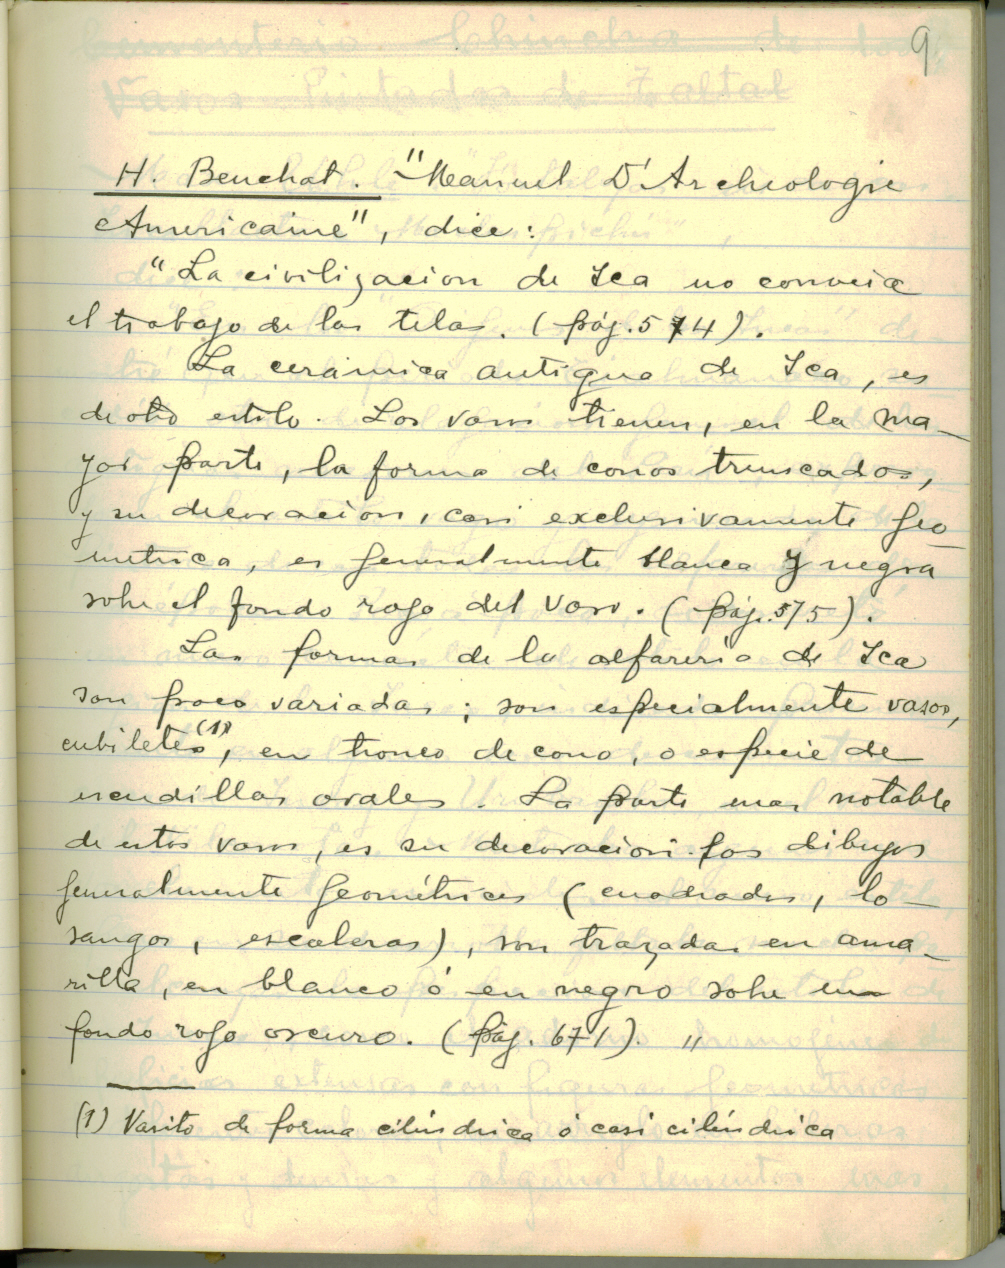 9
H. Beuchat. "Manuel D'Archeologie
Americaine", dice:
"La civilizacion de Ica no conocia
el trabajo de las telas. (pág. 574).
La cerámica antigua de Ica, es
de otro estilo. Los vasos tienen, en la ma-
yor parte, la forma de conos truncados,
y su decoracion, casi exclusivamente geo-
metrica, es generalmente blanca y negra
sobre el fondo rojo del vaso. (pág. 575).
Las formas de la alfareria de Ica
son poco variadas; son especialmente vasos,
cubiletes(1), en tronco de cono, o especie de
escudillas ovales. La parte mas notable
de estos vasos, es su decoracion. Los dibujos
generalmente geométricos (cuadrados, lo-
sangos, escaleras), son trazadas en ama-
rilla, en blanco ó en negro sobre un
fondo rojo oscuro. (pág. 671). "
(1) Vasito de forma cilíndrica ó casi cilíndrica